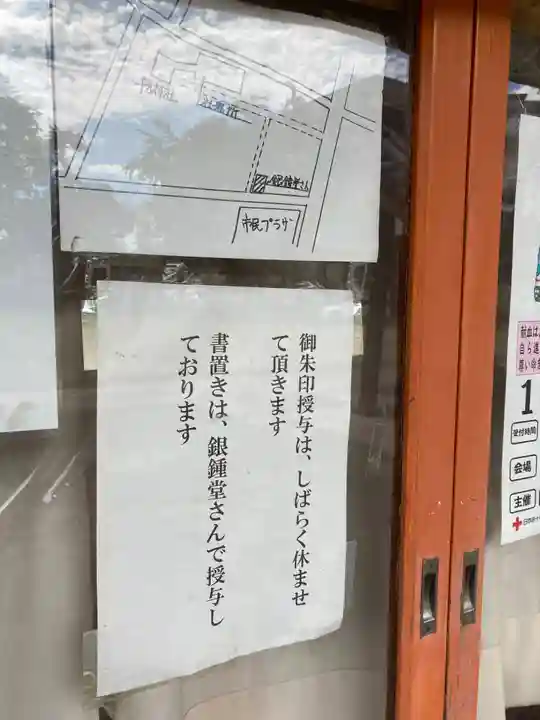 社務所
市民プラザ
御朱印授与は、しばらく休ませ
て頂きます
書置きは、銀鍾堂さんで授与し
ております
献血は、
自ら進
尊い命を
1
受付時間
会場
主催